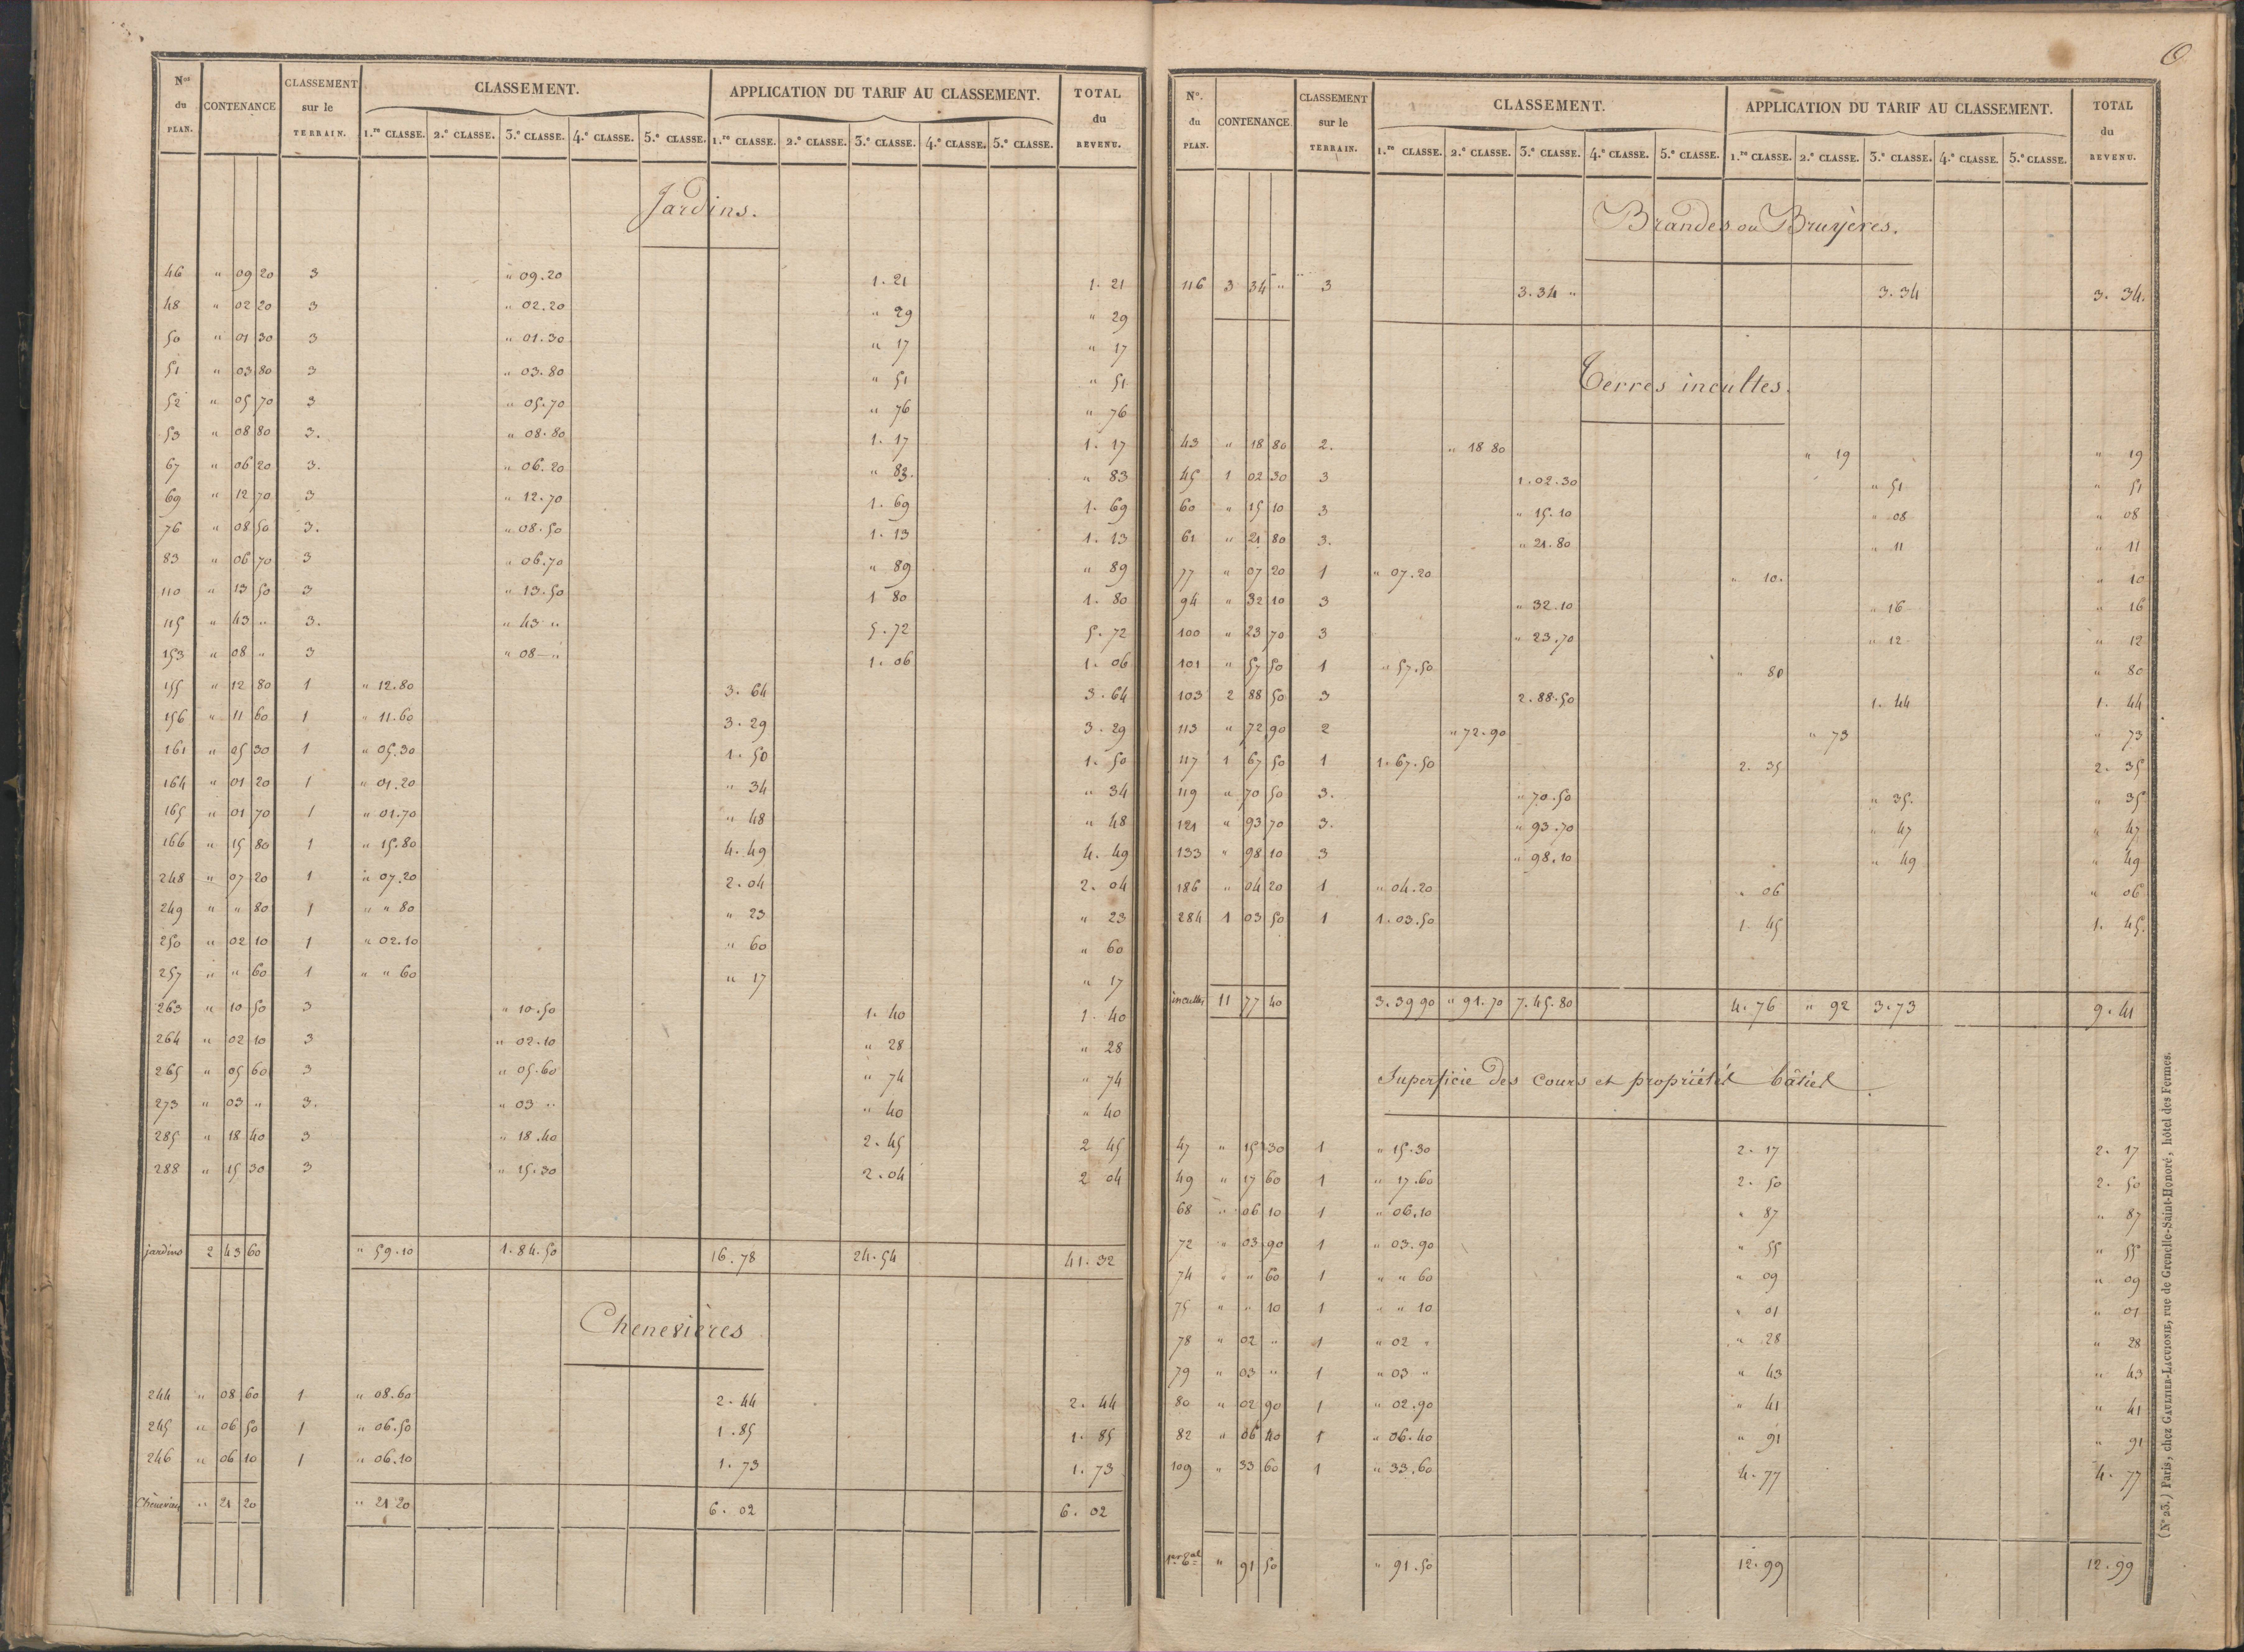 Nos du PLAN. CONTENANCE CLASSEMENT sur le TERRAIN. CLASSEMENT. APPLICATION DU TARIF AU CLASSEMENT. TOTAL du REVENU.
1.re CLASSE. 2.e CLASSE. 3.e CLASSE. 4.e CLASSE. 5.e CLASSE. 1.re CLASSE. 2.e CLASSE. 3.e CLASSE. 4.e CLASSE. 5.e CLASSE.
Jardins.
46 " 09 20 3 " 09.20 1. 21 1. 21
48 " 02 20 3 " 02.20 " 29 " 29
50 " 01 30 3 " 01.30 " 17 " 17
51 " 03 80 3 " 03.80 " 51 " 51
52 " 05 70 3 " 05.70 " 76 " 76
53 " 08 80 3. " 08.80 1. 17 1. 17
67 " 06 20 3. " 06.20 " 83. " 83
69 " 12 70 3 " 12.70 1. 69 1. 69
76 " 08 50 3. " 08.50 1. 13 1. 13
83 " 06 70 3 " 06.70 " 89 " 89
110 " 13 50 3 " 13.50 1 80 1. 80
115 " 43 " 3. " 43 " 5.72 5.72
153 " 08 " 3 " 08 " 1. 06 1. 06
155 " 12 80 1 " 12.80 3. 64 3.64
156 " 11 60 1 " 11.60 3. 29 3. 29
161 " 05 30 1 " 05.30 1. 50 1. 50
164 " 01 20 1 " 01.20 " 34 " 34
165 " 01 70 1 " 01.70 " 48 " 48
166 " 15 80 1 " 15.80 4.49 4. 49
248 " 07 20 1 " 07.20 2.04 2. 04
249 " " 80 1 " " 80 " 23 " 23
250 " 02 10 1 " 02.10 " 60 " 60
257 " " 60 1 " " 60 " 17 " 17
263 " 10 50 3 " 10.50 1. 40 1. 40
264 " 02 10 3 " 02.10 " 28 " 28
265 " 05 60 3 " 05.60 " 74 " 74
273 " 03 " 3. " 03 " " 40 " 40
285 " 18 40 3 " 18.40 2.45 2 45
288 " 15 30 3 " 15.30 2.04 2 04
jardins 2 43 60 " 59.10 1.84.50 16.78 24.54 41.32
Chenevières
244 " 08 60 1 " 08.60 2.44 2. 44
245 " 06 50 1 " 06.50 1.85 1. 85
246 " 06 10 1 " 06.10 1. 73 1. 73
" 21 20 " 21 20 6. 02 6. 02
No. du PLAN. CONTENANCE CLASSEMENT sur le TERRAIN. CLASSEMENT. APPLICATION DU TARIF AU CLASSEMENT. TOTAL du REVENU.
1.re CLASSE. 2.e CLASSE. 3.e CLASSE. 4.e CLASSE. 5.e CLASSE. 1.re CLASSE. 2.e CLASSE. 3.e CLASSE. 4.e CLASSE. 5.e CLASSE.
Brandes ou Bruyères.
116 3 34 " 3 3.34 " 3.34 3. 34.
Terres incultes.
43 " 18 80 2. " 18 80 " 19 " 19
45 1 02 30 3 1.02.30 " 51 " 51
60 " 15 10 3 " 15.10 " 08 " 08
61 " 21 80 3. " 21.80 " 11 " 11
77 " 07 20 1 " 07.20 " 10. " 10
94 " 32 10 3 " 32.10 " 16 " 16
100 " 23 70 3 " 23.70 " 12 " 12
101 " 57 50 1 " 57.50 " 80 " 80
103 2 88 50 3 2.88.50 1. 44 1. 44
113 " 72 90 2 " 72.90 " 73 " 73
117 1 67 50 1 1.67.50 2. 35 2. 35
119 " 70 50 3. " 70.50 " 35. " 35
121 " 93 70 3. " 93.70 " 47 " 47
133 " 98 10 3 " 98.10 " 49 " 49
186 " 04 20 1 " 04.20 " 06 " 06
284 1 03 50 1 1.03.50 1. 45 1. 45.
incultes 11 77 40 3.39 90 " 91.70 7.45.80 4.76 " 92 3.73 9.41
Superficie des Cours et propriétés bâties.
47 " 15 30 1 " 15.30 2. 17 2. 17
49 " 17 60 1 " 17.60 2. 50 2. 50
68 " 06 10 1 " 06.10 " 87 " 87
72 " 03 90 1 " 03.90 " 55 " 55
74 " " 60 1 " " 60 " 09 " 09
75 " " 10 1 " " 10 " 01 " 01
78 " 02 " 1 " 02 " " 28 " 28
79 " 03 " 1 " 03 " " 43 " 43
80 " 02 90 1 " 02.90 " 41 " 41
82 " 06 40 1 " 06.40 " 91 " 91
109 " 33 60 1 " 33.60 4.77 4. 77
" 91 50 " 91.50 12.99 12.99
(N° 23.) Paris, chez GAULTIER-LAGUIONIE, rue de Grenelle-Saint-Honoré, hôtel des Fermes.